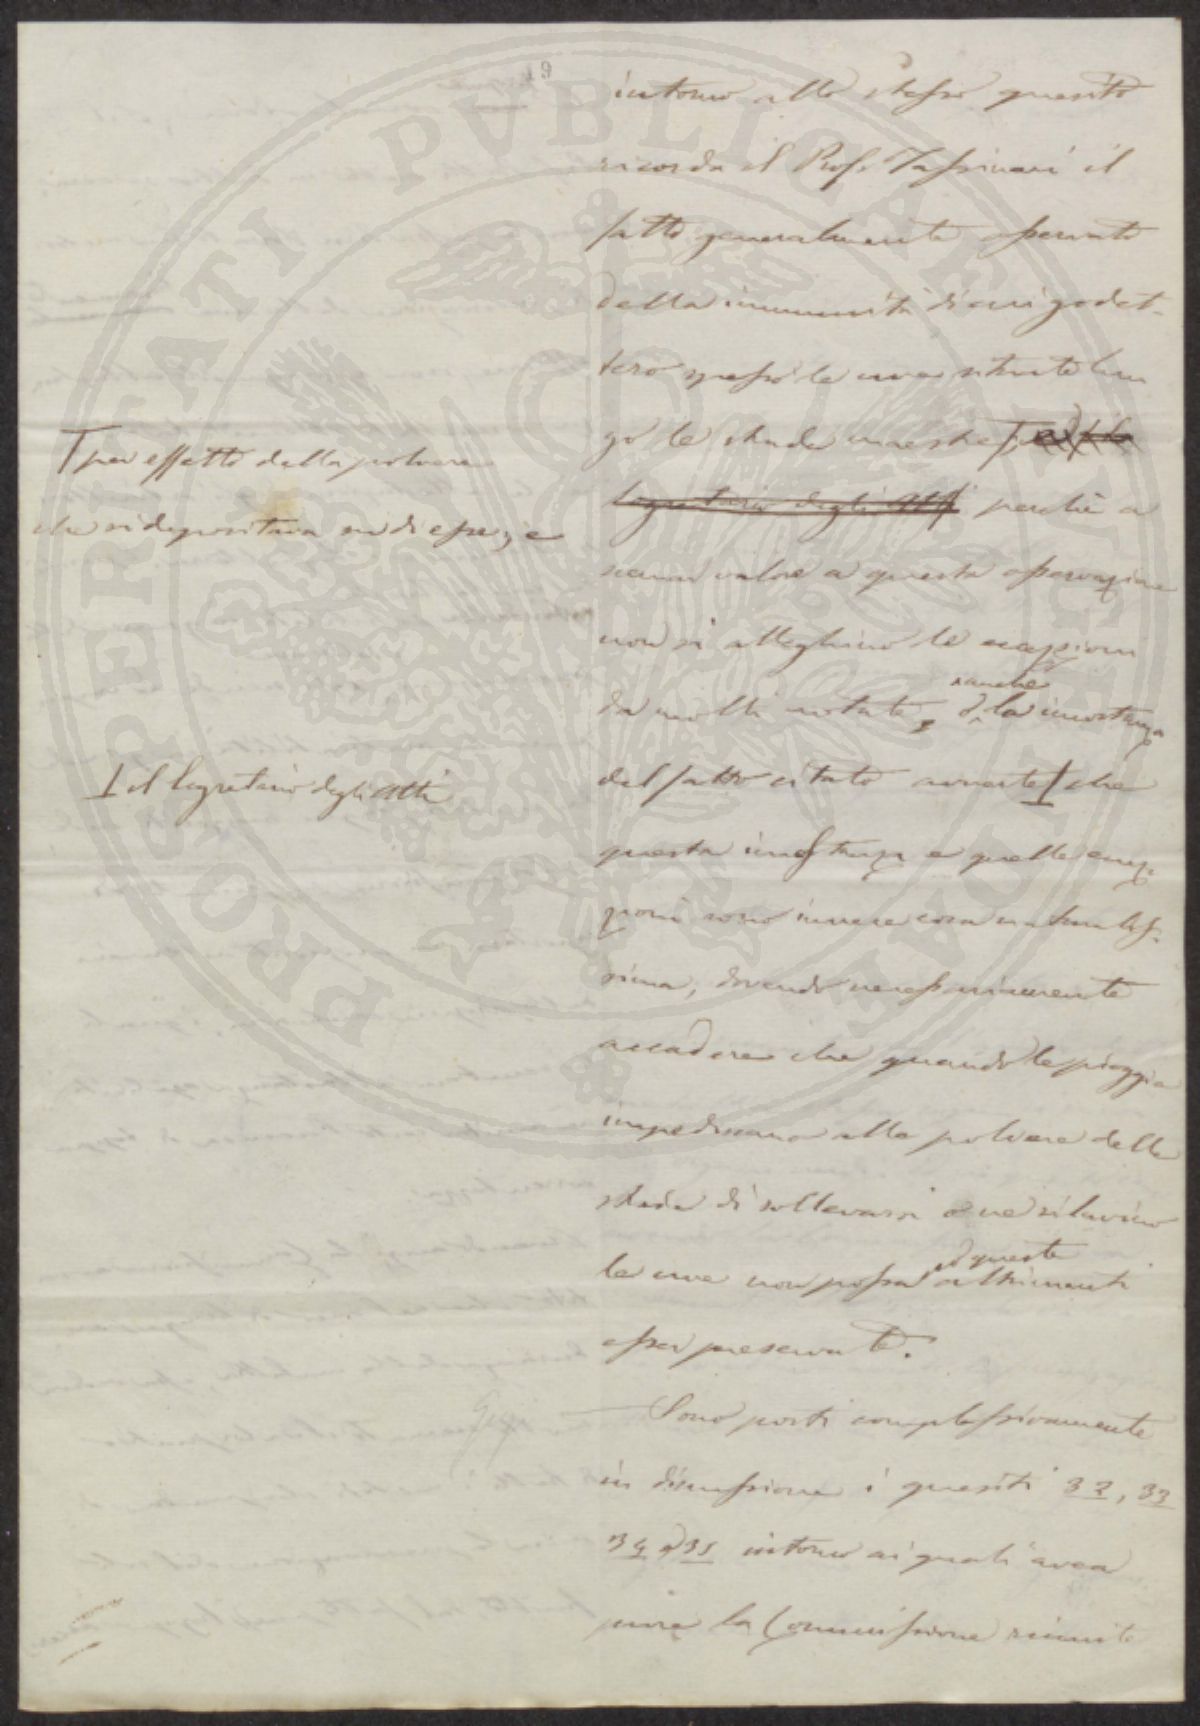 19
intorno allo stesso quesito
ricorda il Profr. Tassinari il
fatto generalmente osservato
della immunità di cui godet-
tero spesso le uve situate lun
go le strade maestre
Segretario degli Atti perchè a
scemar valore a questa osservazione
non si alleghino le eccezioni
da molti notate, e la incostanza
anche
del fatto citato avverte che
questa incostanza e quelle ecce-
zioni sono invece cosa naturalis-
sima, dovendo necessariamente
accadere che quando le pioggie
impediscano alla polvere della
strada di sollevarsi e ne si lavino
le uve non possa altrimenti
queste
esser preservate.
Sono posti complessivamente
in discussione i quesiti 32, 33
34 e 35 intorno ai quali avea
pure la Commissione riunite
per effetto della polvere
che si depositava su di esse, e
il Segretario degli Atti
PROSPERITATI PVBLICAE